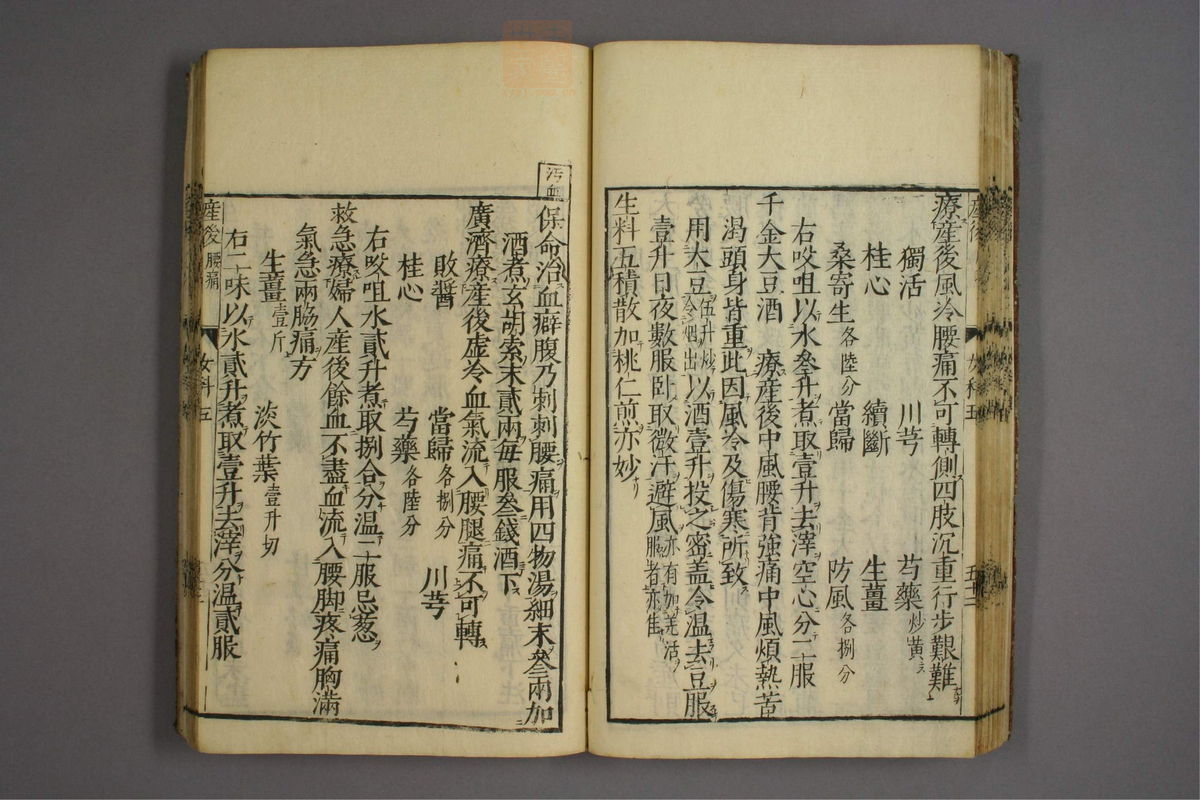 療産後風冷腰痛不可轉側四肢沉重行步艱難
獨活 川芎 芍藥炒黃
桂心 續斷 生薑
桑寄生各陸分 當歸 防風各捌分
右㕮咀以水叄升煮取壹升去滓空心分二服
千金大豆酒 療産後中風腰背強痛中風煩熱苦
渴頭身皆重此因風冷及傷寒所致
用大豆伍升炒令烟出以酒壹升投之密盖令温去豆服
壹升日夜數服卧取微汗避風亦有加羌活服者亦佳
生料五積散加桃仁煎亦妙
汚血
保命治血癖腹乃刺刺腰痛用四物湯細末叄兩加
酒煮玄胡索末貳兩每服叄錢酒下
廣濟療産後虚冷血氣流入腰腿痛不可轉
敗醬 當歸各捌分 川芎
桂心 芍藥各陸分
右㕮咀水貳升煮取捌合分温二服忌葱
救急療婦人産後餘血不盡血流入腰脚疼痛胸滿
氣急兩脇痛方
生薑壹斤 淡竹葉壹升切
右二味以水貳升煮取壹升去滓分温貳服
産後 腰痛
女科五